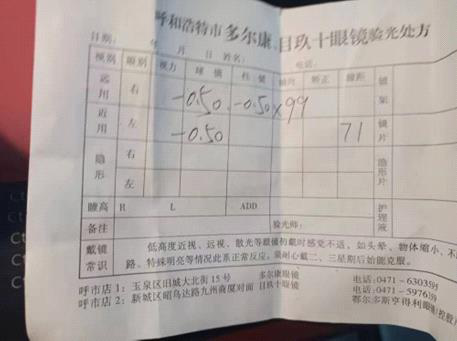 呼和浩特市多尔康、目玖十眼镜验光处方
日期： 年 月 日 姓名： 电话：
视别 眼别 视力 球镜 柱镜 轴向 矫正 瞳距 镜架
远用 右 -0.50 -0.50 ×99
近用 左 -0.50 71 镜片
隐形 右 隐形片
左
瞳高 R L ADD 护理液
备注 验光师：
戴镜常识 低高度近视、远视、散光等最初戴时感觉不适，如头晕、物体缩小、不
路、特殊明亮等情况此系正常反应，须耐心戴二、三星期后始能克服。
呼市店 1：玉泉区旧城大北街 15 号 多尔康眼镜 电话：0471-630359
呼市店 2：新城区昭乌达路九州商厦对面 目玖十眼镜 电话：0471-59763
鄂尔多斯亨得利眼镜